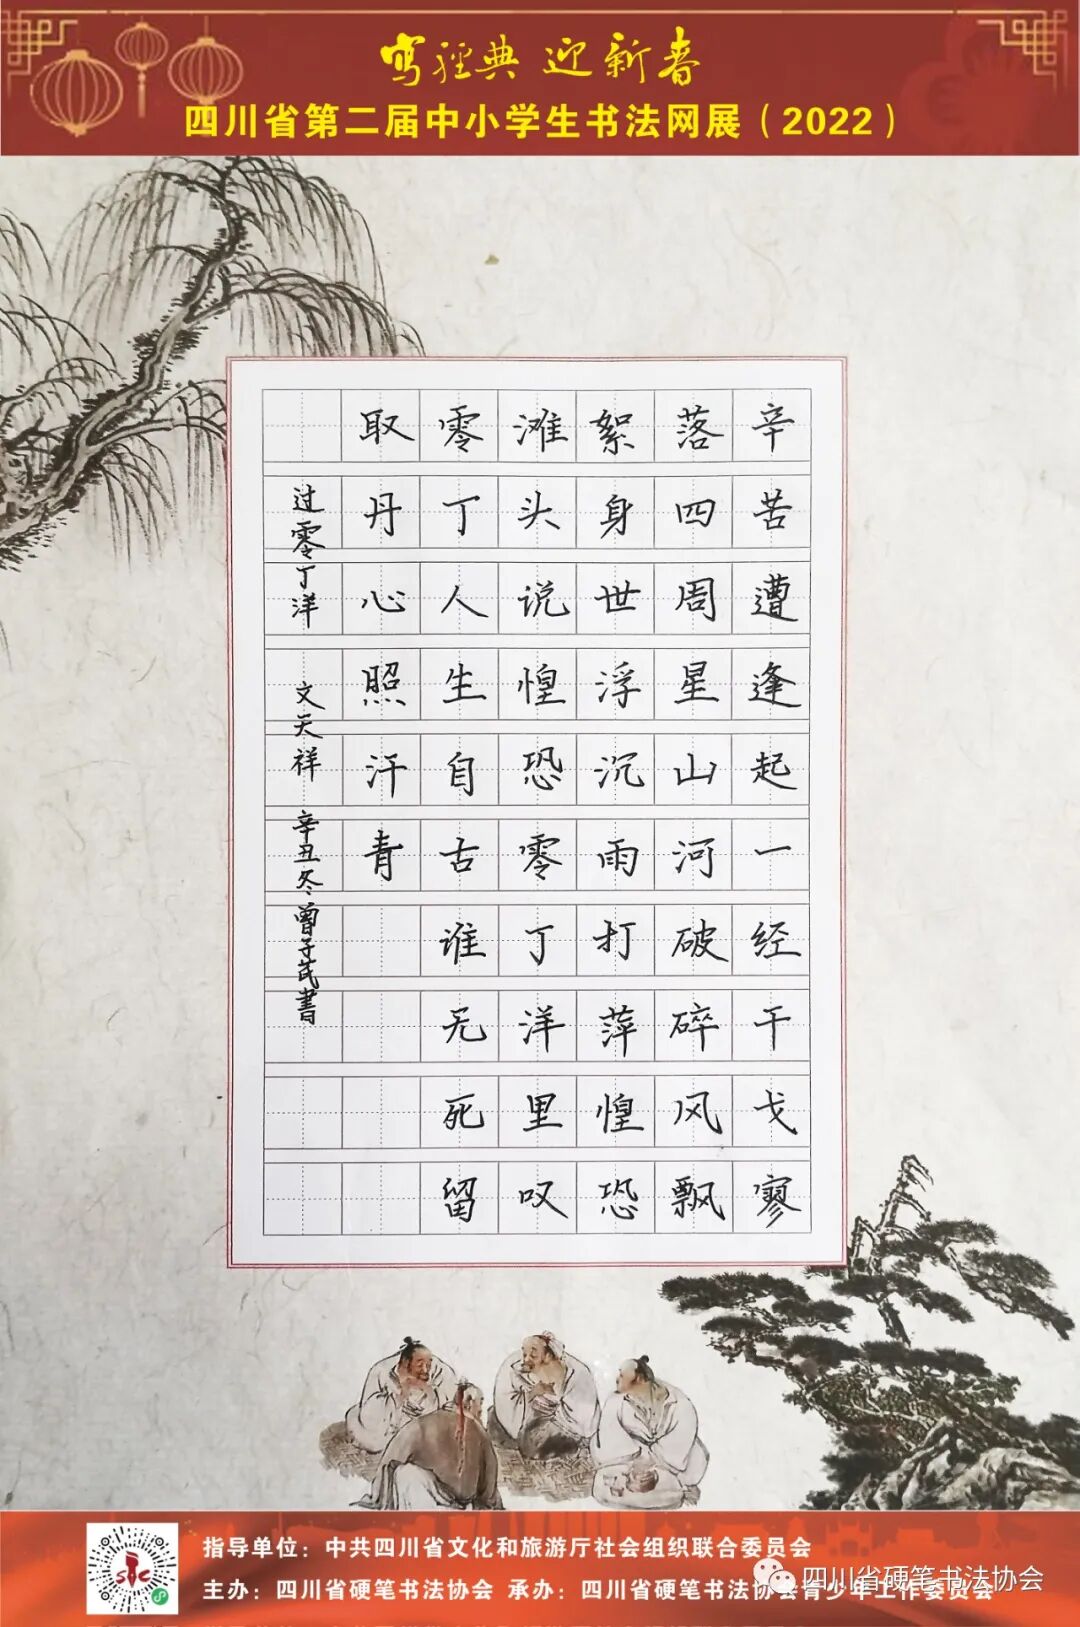 写经典 迎新春
四川省第二届中小学生书法网展（2022）
辛苦遭逢起一经干戈寥
落四周星山河破碎风飘
絮身世浮沉雨打萍惶恐
滩头说惶恐零丁洋里叹
零丁人生自古谁无死留
取丹心照汗青
过零丁洋 文天祥 辛丑冬曾子芪書
指导单位：中共四川省文化和旅游厅社会组织联合委员会
主办：四川省硬笔书法协会 承办：四川省硬笔书法协会青少年工作委员会
四川省硬笔书法协会